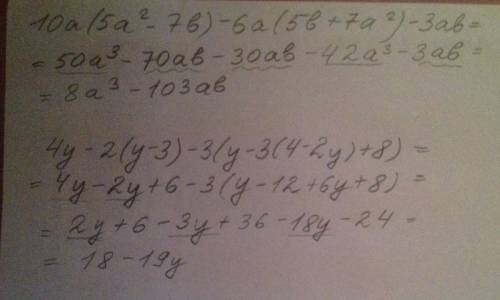 10a(5a² - 7b) - 6a(5b + 7a²) - 3ab =
= 50a³ - 70ab - 30ab - 42a³ - 3ab =
= 8a³ - 103ab
4y - 2(y-3) - 3(y - 3(4-2y) + 8) =
= 4y - 2y + 6 - 3(y - 12 + 6y + 8) =
= 2y + 6 - 3y + 36 - 18y - 24 =
= 18 - 19y